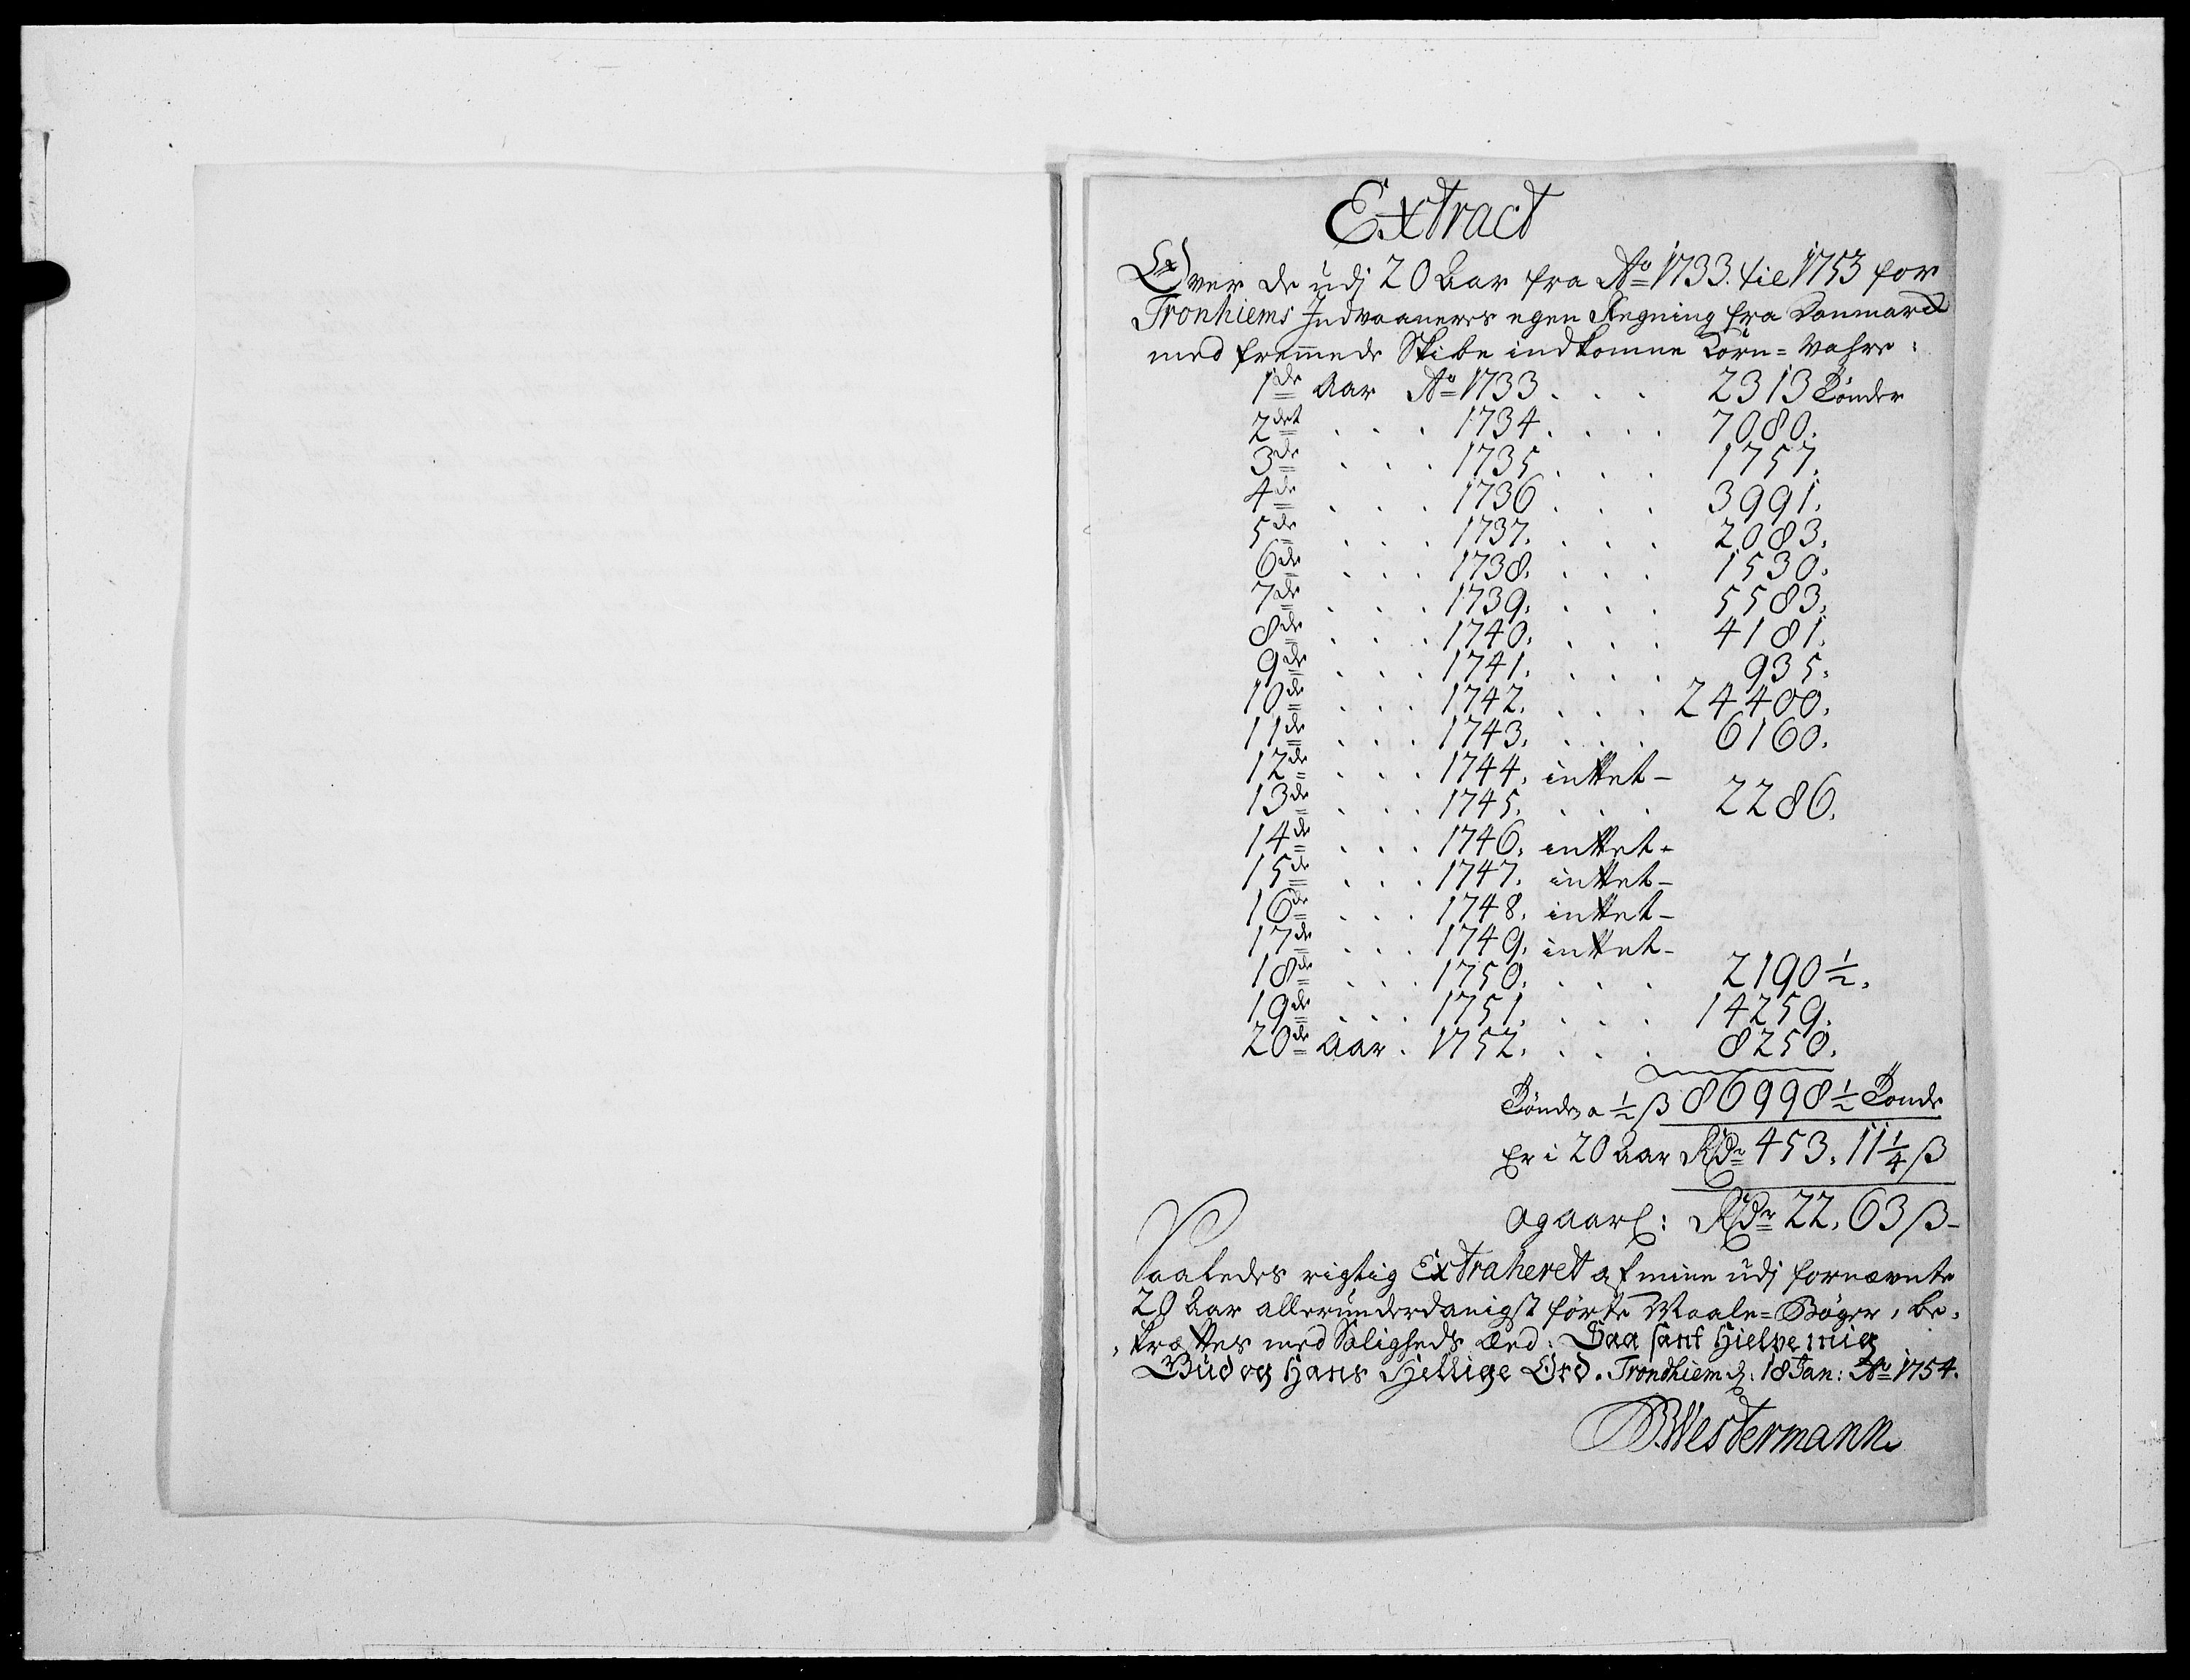 Extract
Over de udj 20 Aar fra Ao 1733. til 1753 for
Tronhiems Indvaaneres egen Regning fra Danmarck
med fremmede Skibe indkomne Korn=Vahre:
1de Aar Ao 1733 . . . 2313 Tønder
2det . . . 1734 . . . . 7080.
3de . . . 1735 . . . 1757.
4de . . . 1736 . . . 3991.
5de . . . 1737. . . . 2083.
6de . . . 1738. . . . 1530.
7de . . . 1739. . . . 5583.
8de . . . 1740. . . . 4181.
9de . . . 1741. . . . 935.
10de . . . 1742. . . . 24400.
11de . . . 1743. . . . 6160.
12de . . . 1744. intet –
13de . . . 1745. . . . 2286.
14de . . . 1746. intet –
15de . . . 1747. intet –
16de . . . 1748. intet –
17de . . . 1749. intet –
18de . . . 1750. . . . 2190 ½.
19de . . . 1751. . . . 14259.
20de Aar . 1752. . . . 8250.
Tønder a ½ ß 86998 ½ Tønde
Er i 20 Aar Rdr 453. 11 ¼ ß
og aarl: Rdr 22. 63 ß –
Saaledes rigtig Extraheret af mine udj fornævnte
20 Aar allerunderdanigst førte Maale=Bøger, be-
kræftes med Saligheds Eed: Saa sant Hielpe mig
Gud og Hans Hellige Ord. Trondhiem d: 18 Jan: Ao 1754.
B Westermann